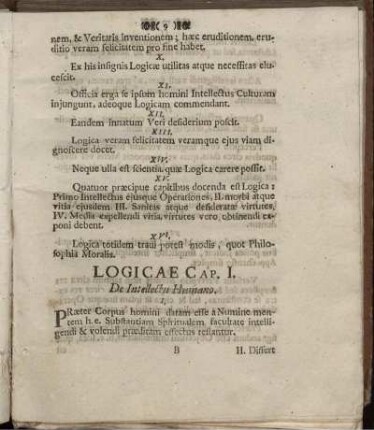 9
nem, & Veritatis inventionem; hæc eruditionem, eru-
ditio veram felicitatem pro fine habet.
X.
Ex his insignis Logicæ utilitas atque necessitas elu-
cescit.
XI.
Officia erga se ipsum homini Intellectus Culturam
injungunt, adeoque Logicam commendant.
XII.
Eandem innatum Veri desiderium poscit.
XIII.
Logica veram felicitatem veramque ejus viam di-
gnoscere docet.
XIV.
Neque ulla est scientia, quæ Logica carere possit.
XV.
Quatuor præcipue capitibus docenda est Logica:
Primo Intellectus ejusque Operationes, II. morbi atque
vitia ejusdem III. Sanitas atque desideratæ virtutes,
IV. Media expellendi vitia, virtutes vero obtinendi ex-
poni debent.
XVI.
Logica totidem tradi potest modis, quot Philo-
sophia Moralis.
LOGICAE CAP. I.
De Intellectu Humano.
I.
PRæter Corpus homini datam esse a Numine men-
tem h. e. Substantiam Spiritualem facultate intelli-
gendi & volendi præditam effectus testantur.
B II. Differt